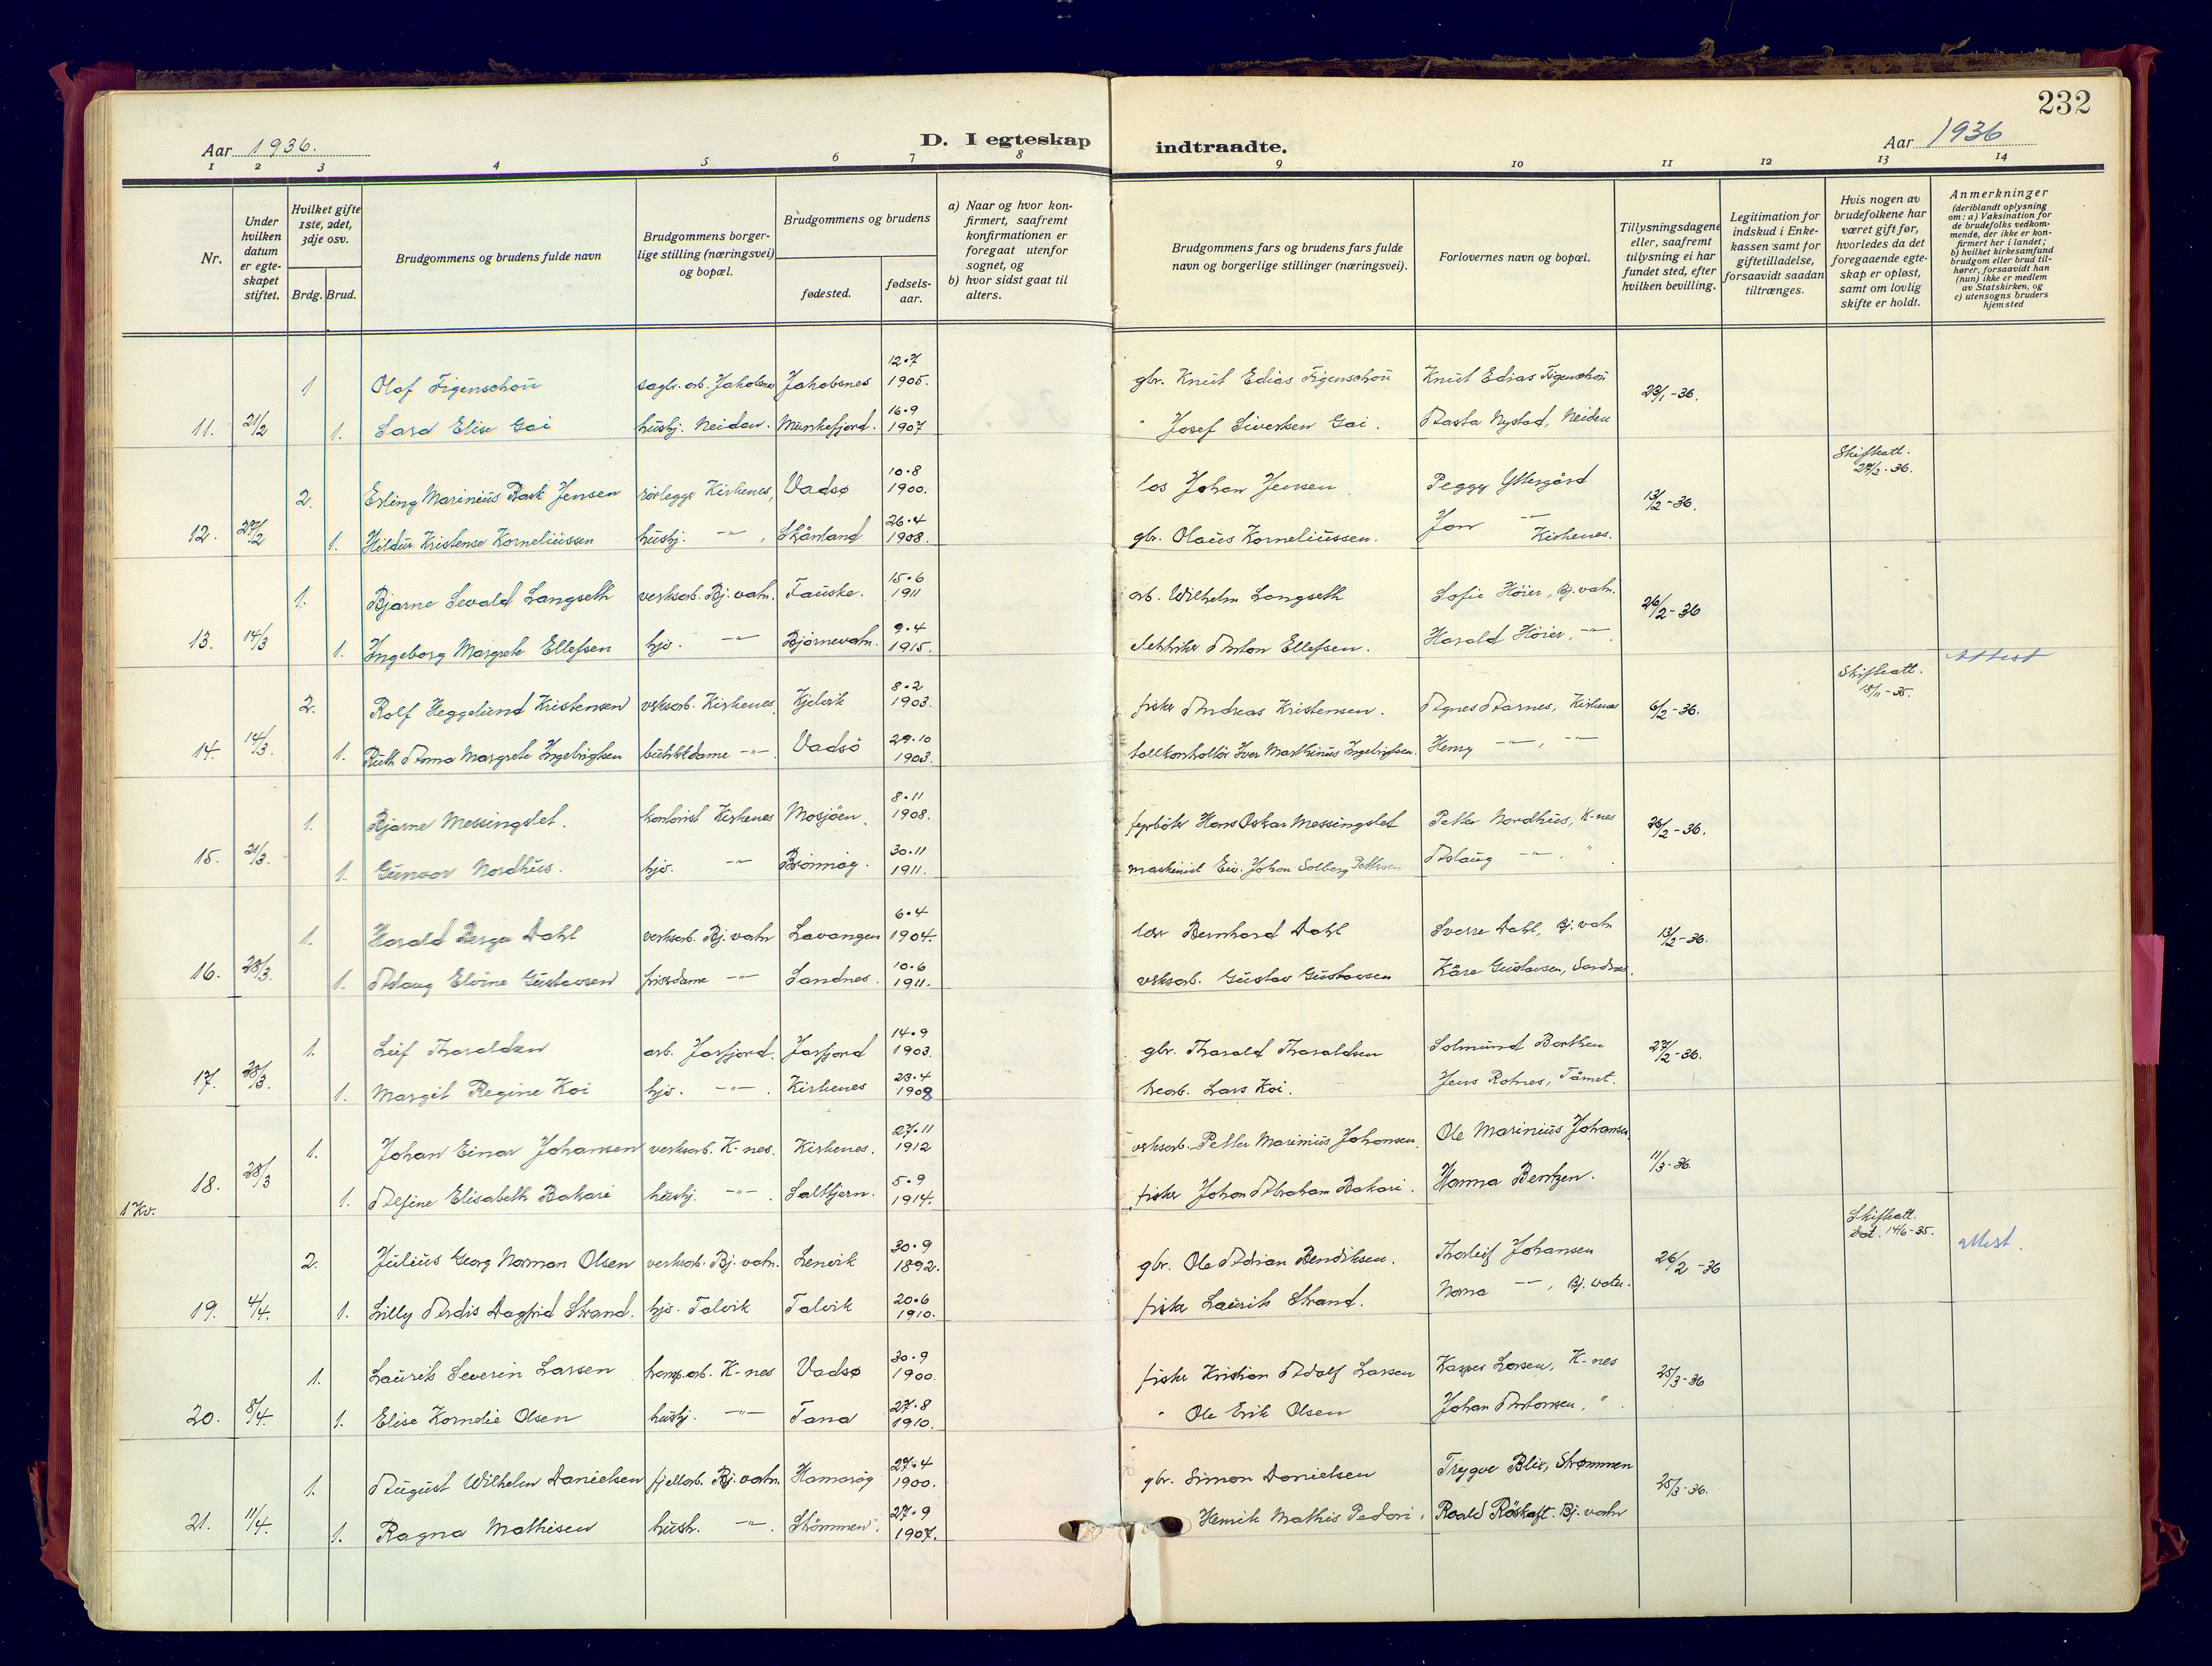 232
Aar 1936.
D. I egteskap
indtraadte.
Aar 1936
1 2 3 4 5 6 7 8 9 10 11 12 13 14
Nr.
Under hvilken datum er egteskapet stiftet.
Hvilket gifte 1ste, 2det, 3dje osv.
Brdg. Brud.
Brudgommens og brudens fulde navn
Brudgommens borgerlige stilling (næringsvei) og bopæl.
Brudgommens og brudens
fødested.
fødselsaar.
a) Naar og hvor konfirmert, saafremt konfirmationen er foregaat utenfor sognet, og
b) hvor sidst gaat til alters.
Brudgommens fars og brudens fars fulde navn og borgerlige stillinger (næringsvei).
Forlovernes navn og bopæl.
Tillysningsdagene eller, saafremt tillysning ei har fundet sted, efter hvilken bevilling.
Legitimation for indskud i Enkekassen samt for giftetilladelse, forsaavidt saadan tiltrænges.
Hvis nogen av brudefolkene har været gift før, hvorledes da det foregaaende egteskap er opløst, samt om lovlig skifte er holdt.
Anmerkninger (deriblandt oplysning om: a) Vaksination for de brudefolks vedkommende, der ikke er konfirmert her i landet; b) hvilket kirkesamfund brudgom eller brud tilhører, forsaavidt han (hun) ikke er medlem av Statskirken, og c) utensogns bruders hjemsted
1 Olaf Figenschou sagbr. arb. Jakobsnes Jakobsnes 12.7 1905. gbr. Knut Edias Figenschou Knut Edias Figenschou 23/1-36.
11. 21/2 1. Sara Elise Gai hushj. Neiden. Munkefjord. 16.9 1907 " Josef Sivertsen Gai. Aasta Nystad, Neiden
2. Erling Marinius Rask Jensen rørlegger Kirkenes, Vadsø 10.8 1900. los Johan Jensen Peggy Yttergård 13/2-36. Skifteatt. 24/2-36.
12. 27/2 1. Hildur Kristense Korneliussen hushj. -"-, Skånland 26.4 1908. gbr. Olaus Korneliussen. Jon -"- Kirkenes.
1. Bjarne Sevald Langseth verksarb. Bj.vatn. Fauske. 15.6 1911 arb. Wilhelm Langseth Sofie Höier, Bj.vatn. 26/2-36
13. 14/3 1. Ingeborg Margrete Ellefsen hjv. -"- Björnevatn. 9.4 1915. Anton Ellefsen. Harald Höier, -"-.
2. Rolf Heggelund Kristensen verksarb. Kirkenes Kjelvik 8.2 1903. fisker Andreas Kristensen. Agnes Aarnes, Kirkenes 6/2-36. Skifteatt. 18/11-35. Attest
14. 14/3. 1. Ruth Anna Margrete Ingebrigtsen butikkdame -"- Vadsö 29.10 1903. tollkontrollör Iver Marthinus Ingebrigtsen. Henry -"-, -"-
1. Bjarne Messingslet. kontorist Kirkenes Mosjöen. 8.11 1908. fyrböter Hans Oskar Messingslet Petter Nordhus, K-nes 26/2-36.
15. 21/3. 1. Gunvor Nordhus. hjv. -"- Brönnöy. 30.11 1911. maskinist Eiv. Johan Solberg Pettersen Aslaug -"-. "
1. Harald Berger Dahl verksarb. Bj.vatn Lavangen 6.4 1904. lær Bernhard Dahl Sverre Dahl, Bj.vatn 13/2-36.
16. 28/3. 1. Aslaug Elvine Gustavsen frisedame -"- Sandnes. 10.6 1911. verksarb. Gustav Gustavsen Kåre Gustavsen, Sandnes.
1. Leif Tharaldsen arb. Jarfjord. Jarfjord 14.9 1903. gbr. Tharald Tharaldsen Solmund Barthen 27/2-36.
17. 28/3. 1. Margit Regine Koi hjv. -"-. Kirkenes 23.4 1908 Lars Koi. Jens Rotnes, Tårnet.
1. Johan Einar Johansen verksarb. K-nes. Kirkenes. 27.11 1912 verksarb. Petter Marinius Johansen. Ole Marinius Johansen. 11/3-36.
18. 28/3 1. Alfine Elisabeth Bakari hushj. -"-. Saltbjern. 5.9 1914. fisker Johan Abraham Bakari. Hanna Bentzen.
1 Kv.
2. Julius Georg Norman Olsen verksarb. Bj.vatn. Lenvik 30.9 1892. gbr. Ole Adrian Bendiksen. Thorleif Johansen 26/2-36 Skifteatt. dat. 14/6-35. attest.
19. 4/4. 1. Lilly Ardis Dagfrid Strand. hjv. Talvik Talvik 20.6 1910. fisker Laurits Strand. Norna -"-, Bj.vatn.
1. Laurits Severin Larsen K-nes Vadsø 30.9 1900. fisker Kristian Adolf Larsen Kasper Larsen, K-nes 25/3-36
20. 8/4. 1. Elise Kornelie Olsen hushj. -"- Tana 27.8 1910. " Ole Erik Olsen Johan Antonsen, "
1. August Wilhelm Danielsen fjellarb. Bj.vatn. Hamarøy 27.4 1900. gbr. Simon Danielsen Trygve Blix, Strømmen 25/3-36.
21. 11/4. 1. Ragna Mathisen hush. -"-. Strömmen. 27.9 1907. Henrik Mathis Pedari. Roald Röskaft. Bj.vatn